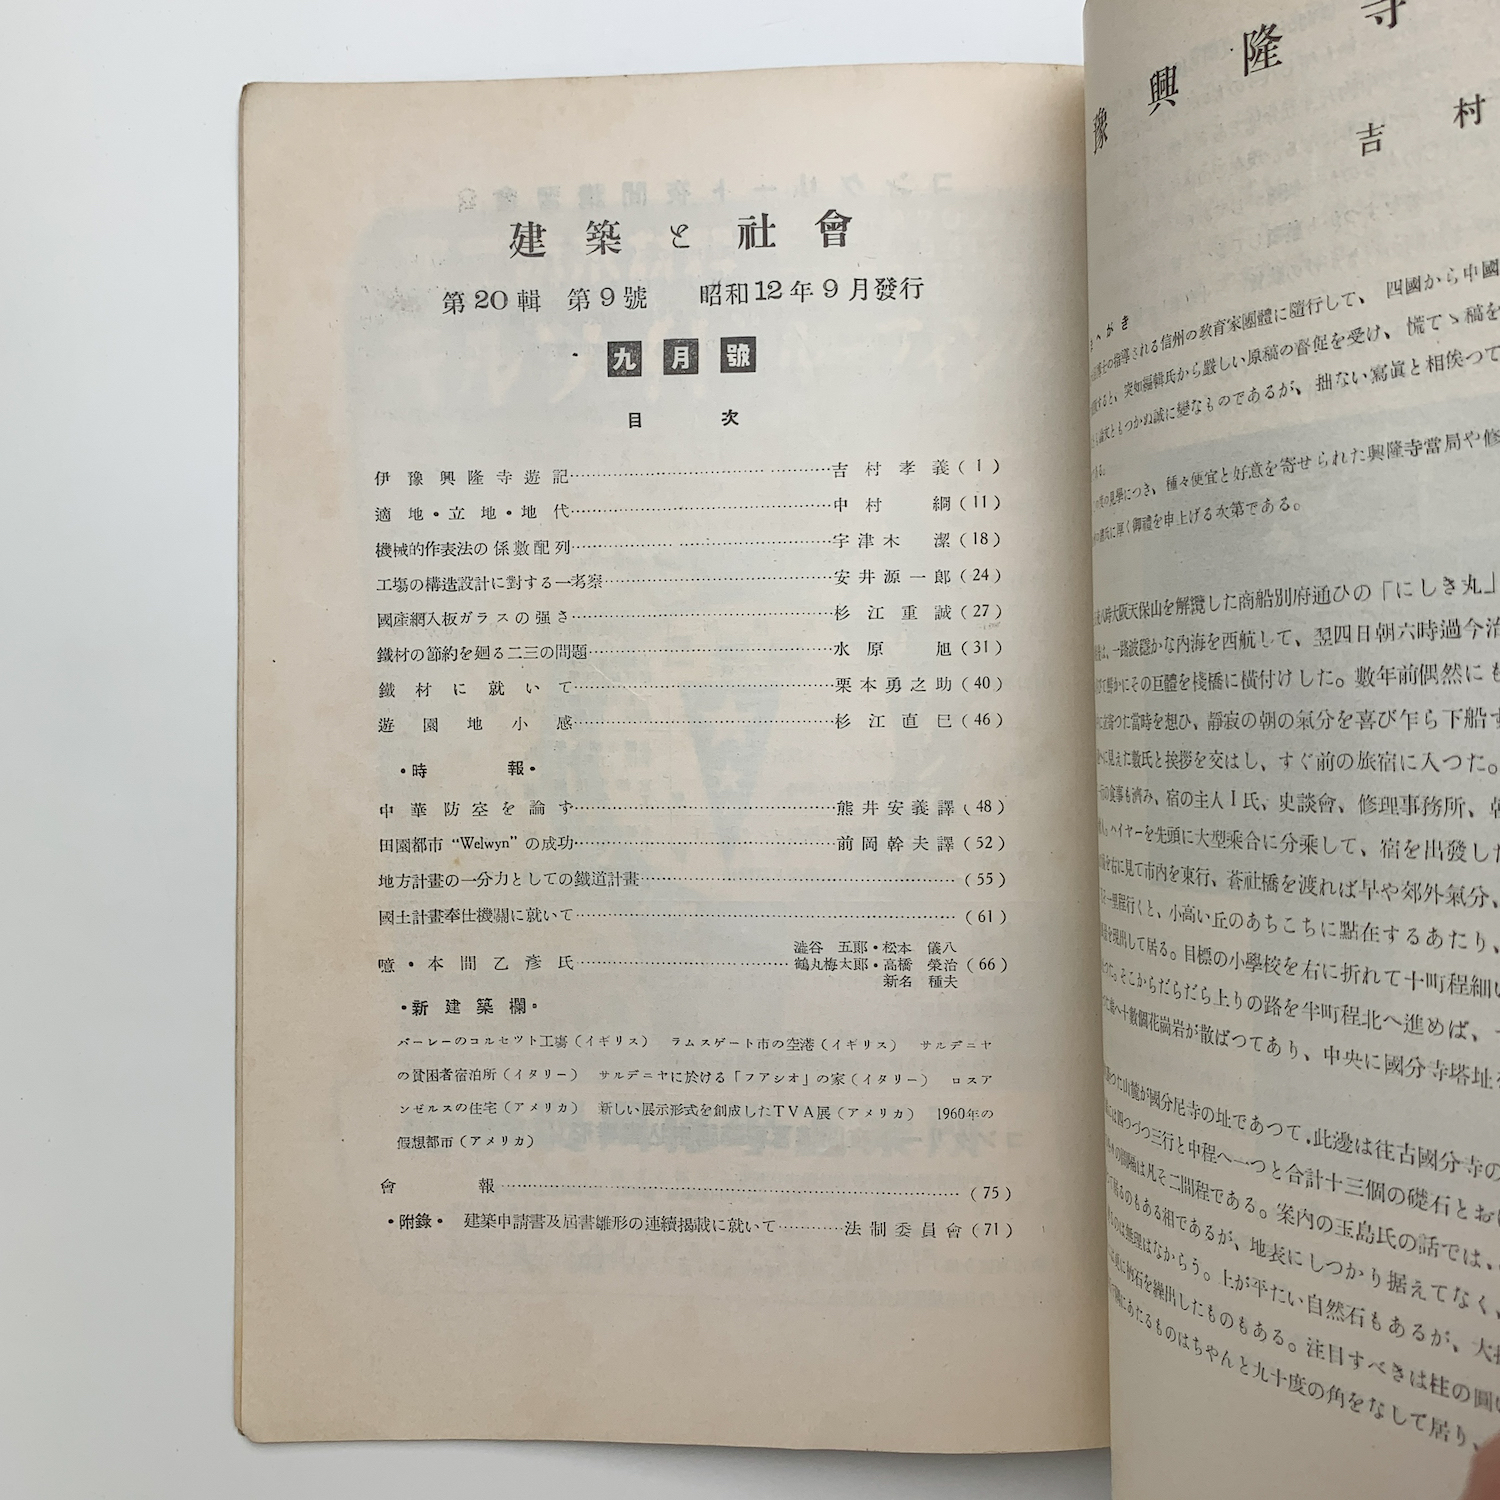 建築と社會
第20輯 第9號 昭和12年9月發行
九月號
目次
伊豫興隆寺遊記……………………吉村孝義(1)
適地・立地・地代……………………中村 綱(11)
機械的作表法の係數配列……………………宇津木 潔(18)
工場の構造設計に對する一考察……………………安井源一郎(24)
國產網入板ガラスの强さ……………………杉江重誠(27)
鐵材の節約を廻る二三の問題……………………水原 旭(31)
鐵材に就いて……………………栗本勇之助(40)
遊園地小感……………………杉江直巳(46)
・時報・
中華防空を論ず……………………熊井安義譯(48)
田園都市 “Welwyn” の成功……………………前岡幹夫譯(52)
地方計畫の一分力としての鐵道計畫……………………(55)
國土計畫奉仕機關に就いて……………………(61)
澁谷 五郎・松本 儀八
噫・本間乙彥氏……………………鶴丸梅太郎・高橋 榮治(66)
新名 種夫
・新建築欄・
バーレーのコルセツト工場(イギリス) ラムスゲート市の空港(イギリス) サルデニヤ
の貧困者宿泊所(イタリー) サルデニヤに於ける「フアシオ」の家(イタリー) ロスア
ンゼルスの住宅(アメリカ) 新しい展示形式を創成したTVA展(アメリカ) 1960年の
假想都市(アメリカ)
會報……………………(75)
・附錄・ 建築申請書及屆書雛形の連續揭載に就いて…………法制委員會(71)
豫興隆寺
吉村
の指導される信州の敎育家團體に隨行して、四國から中國
すると、突如編輯氏から嚴しい原稿の督促を受け、慌てゝ稿を
ともつかぬ誠に變なものであるが、拙ない寫眞と相俟つて
の見學につき、種々便宜と好意を寄せられた興隆寺當局や修
氏に厚く御禮を申上げる次第である。
時大阪天保山を解纜した商船別府通ひの「にしき丸」
は、一路波穩かな內海を西航して、翌四日朝六時過今治
かにその巨體を棧橋に橫付けした。數年前偶然にも
つた當時を想ひ、靜寂の朝の氣分を喜び乍ら下船す
に見えた數氏と挨拶を交はし、すぐ前の旅宿に入つた。
の食事も濟み、宿の主人I氏、史談會、修理事務所、
ハイヤーを先頭に大型乘合に分乘して、宿を出發した
を右に見て市內を東行、蒼社橋を渡れば早や郊外氣分、
一里程行くと、小高い丘のあちこちに點在するあたり、
を現出して居る。目標の小學校を右に折れて十町程細い
そこからだらだら上りの路を半町程北へ進めば、
十數個花崗岩が散ばつてあり、中央に國分寺塔址
つた山麓が國分尼寺の址であつて、此邊は往古國分寺の
は四つづつ三行と中程へ一つと合計十三個の礎石とお
は凡そ二間程である。案內の玉島氏の話では、
るのもある相であるが、地表にしつかり据えてなく、
のは無理はなからう。上が平たい自然石もあるが、大
石を繰出したものもある。注目すべきは柱の圓い
にあたるものはちやんと九十度の角をなして居り、